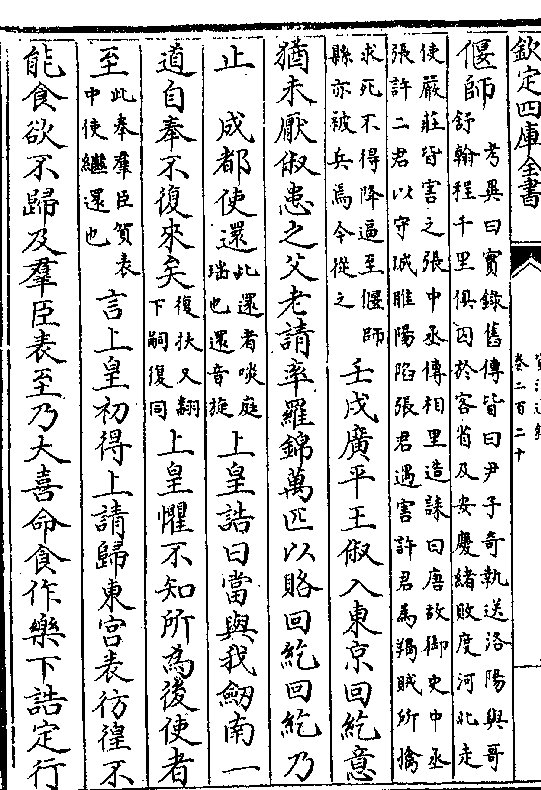 欽定四庫全書
資治通鑑
卷二百二十
偃師考異曰實錄舊傳皆曰尹子奇執送洛陽與哥
舒翰程千里俱囚於客省及安慶緒敗度河北走
使嚴莊皆害之張中丞傳相里造誄曰唐故御史中丞
張許二君以守城睢陽陷張君遇害許君為羯賊所擒
求死不得降逼至偃師
縣亦被兵焉今從之壬戌廣平王俶入東京回紇意
猶未厭俶患之父老請率羅錦萬匹以賂回紇回紇乃
止成都使還此還者啖庭
瑶也還音旋上皇誥曰當與我劒南一
道自奉不復來矣復扶又翻
下嗣復同上皇懼不知所為後使者
至此奉羣臣賀表
中使繼還也言上皇初得上請歸東宫表彷徨不
能食欲不歸及羣臣表至乃大喜命食作樂下誥定行